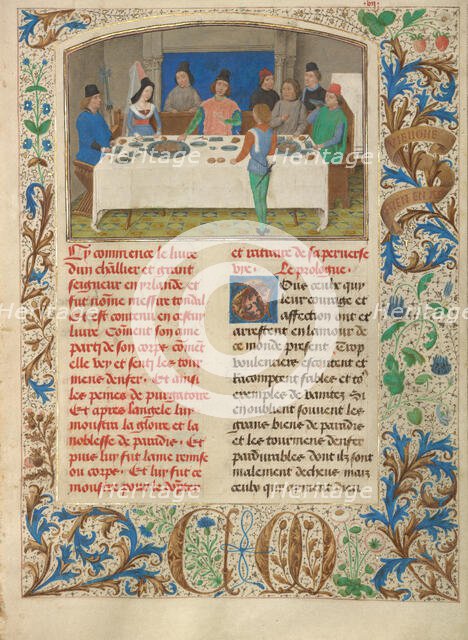 vii
Cy commence le livre
dun challier et grant
seigneur en yrlande et
fut nomme messire tondal
et est contenu en cestuy
livre Coment son ame
party de son corps Coment
elle vey et senty les tour
mens denfer Et aussi
les peines de purgatoire
Et apres langele luy
monstra la gloire et la
noblesse de paradis Et
puis luy fut lame remise
ou corps Et luy fut ce
monstre pour le donner
et retraire de sa perverse
vye. Le prologue.
Pour ceulx qui
leur courage et
affection ont et
arrestent en lamour de
ce monde present Trop
voulenciers escoutent et
racomptent fables et
exemples de vanitez Si
en oublient souvent les
grans biens de paradis
et les tourmens denfer
pardurables dont ilz sont
malement decheuz mais
ceulx qui ayment dieu
VIENGNE
BIEN EN A
C M
Heritage
Heritage
Heritage
Heritage